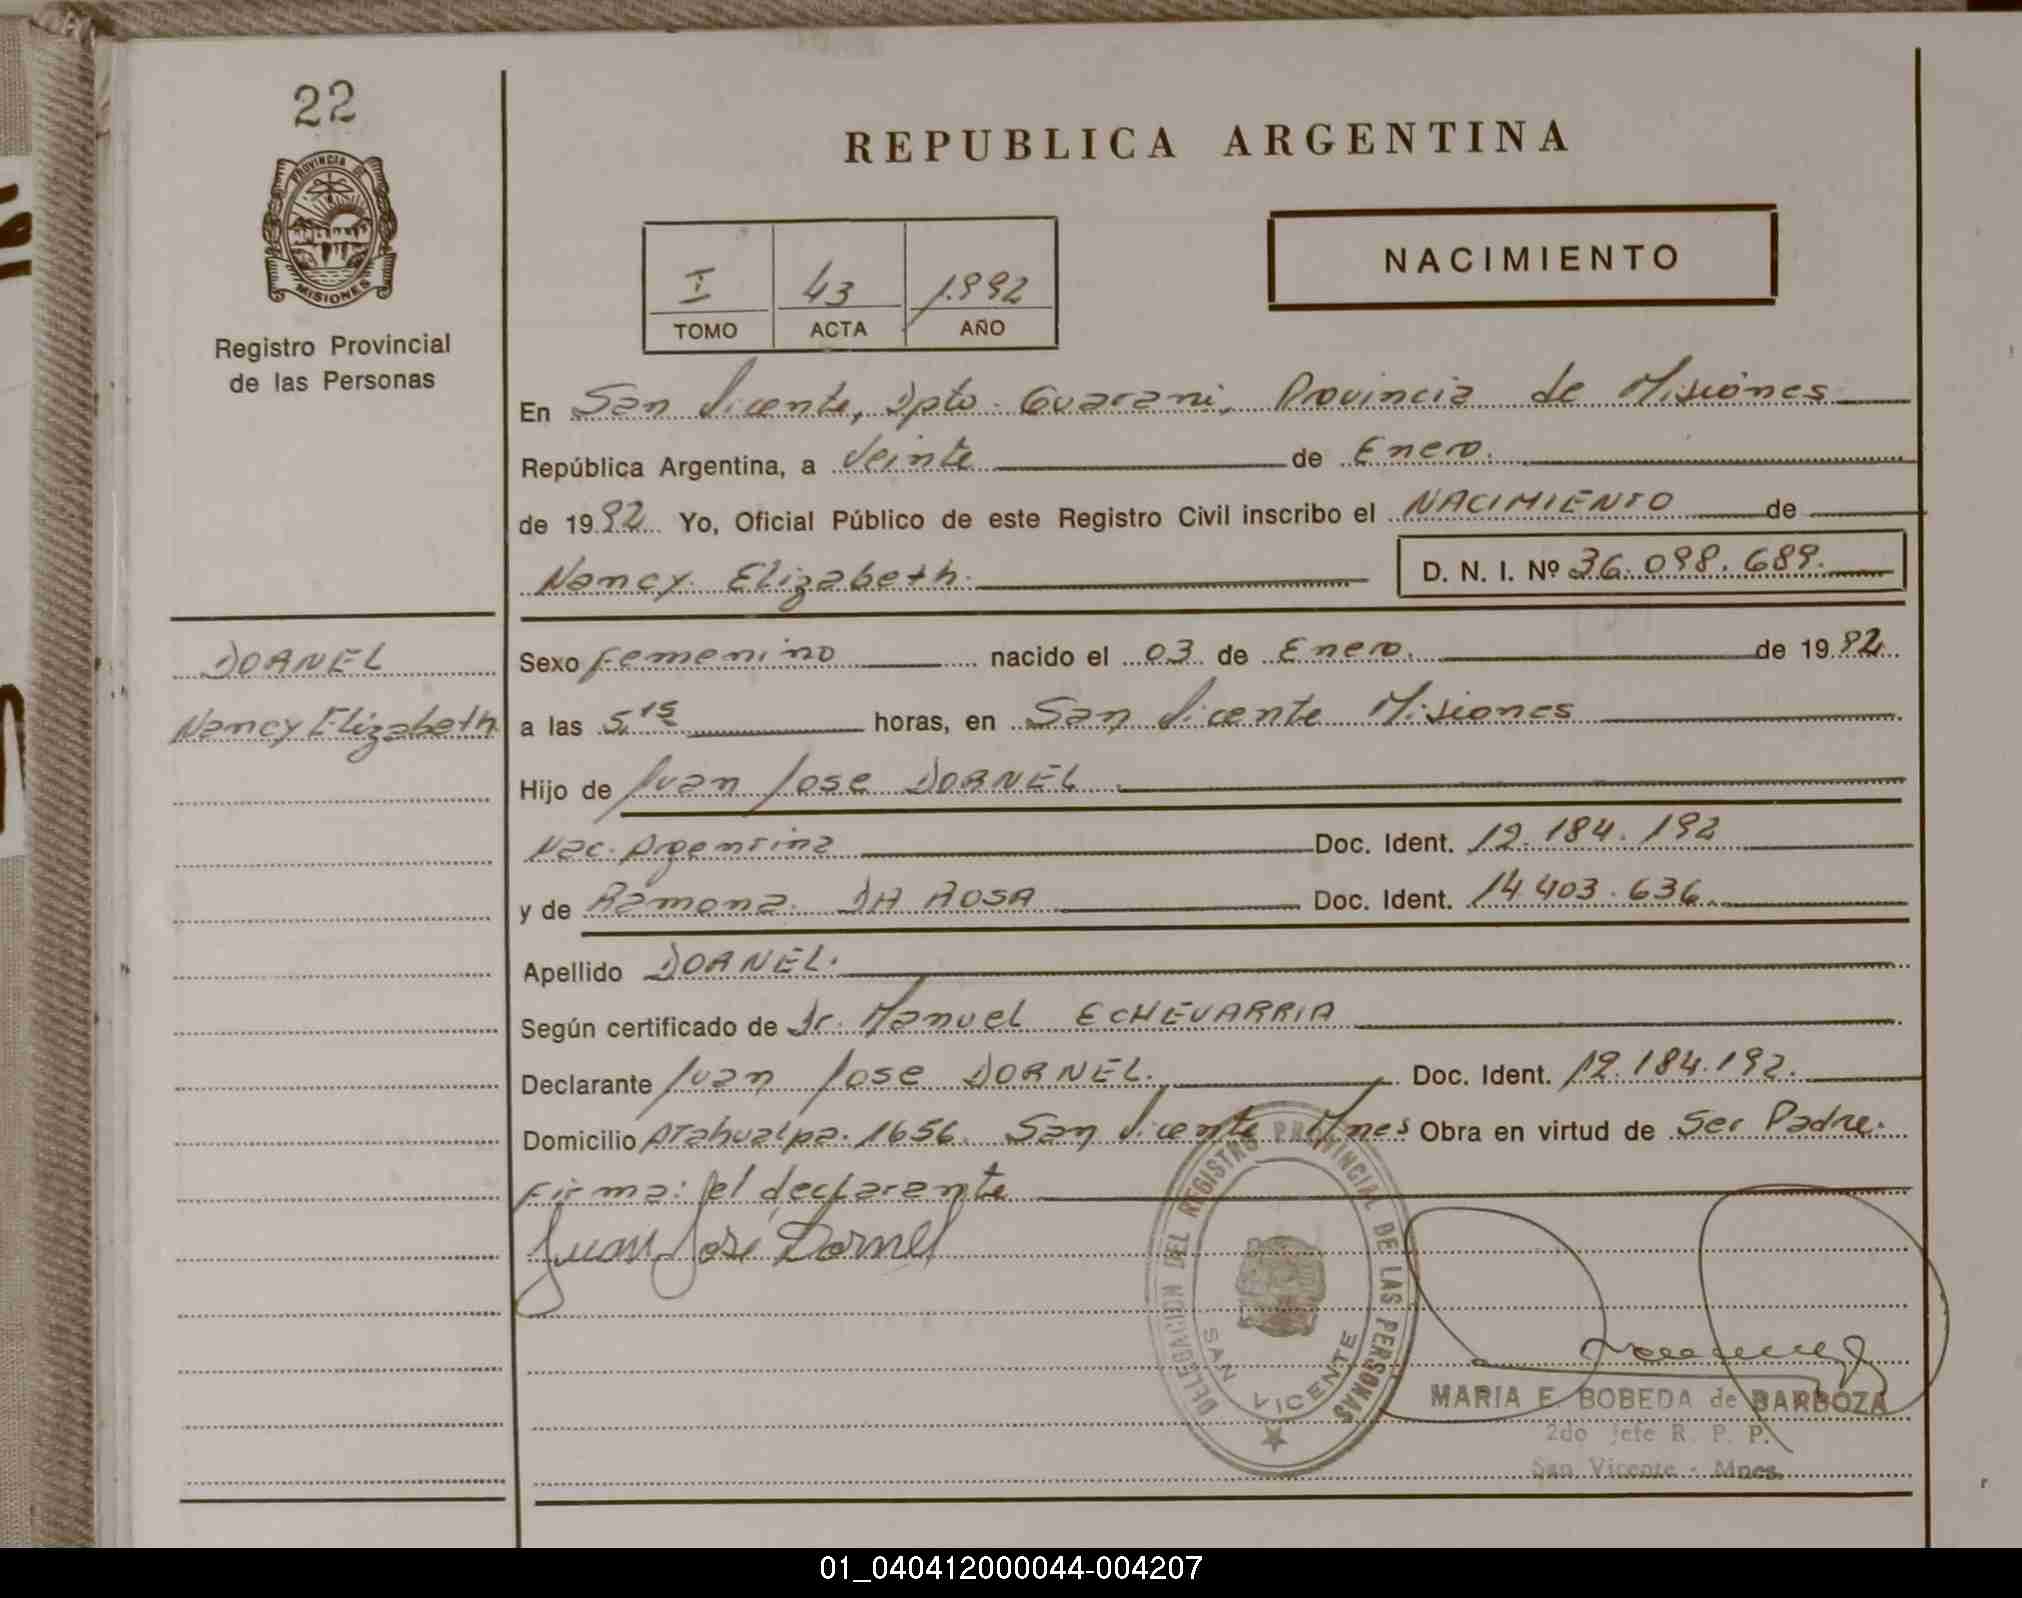 22
PROVINCIA DE
MISIONES
Registro Provincial
de las Personas
REPUBLICA ARGENTINA
NACIMIENTO
I 43 1992
TOMO ACTA AÑO
En San Vicente, Dpto. Guarani, Provincia de Misiones
República Argentina, a Veinte de Enero.
de 1992 Yo, Oficial Público de este Registro Civil inscribo el NACIMIENTO de
Nancy Elizabeth. D. N. I. Nº 36.098.689.
DORNEL
Nancy Elizabeth
Sexo Femenino nacido el 03 de Enero. de 1992
a las 5,15 horas, en San Vicente Misiones
Hijo de Juan Jose DORNEL
Nac. Argentina Doc. Ident. 12.184.192
y de Ramona DA ROSA Doc. Ident. 14.403.636.
Apellido DORNEL.
Según certificado de Dr. Manuel ECHEVARRIA
Declarante Juan Jose DORNEL. Doc. Ident. 12.184.192.
Domicilio Atahualpa. 1656. San Vicente Mnes Obra en virtud de Ser Padre.
Firma: el declarante
Juan José Dornel
DELEGACION DEL REGISTRO PROVINCIAL DE LAS PERSONAS
SAN VICENTE
MARIA E. BOBEDA de BARBOZA
2do Jefe R. P. P.
San Vicente - Mnes.
01_040412000044-004207